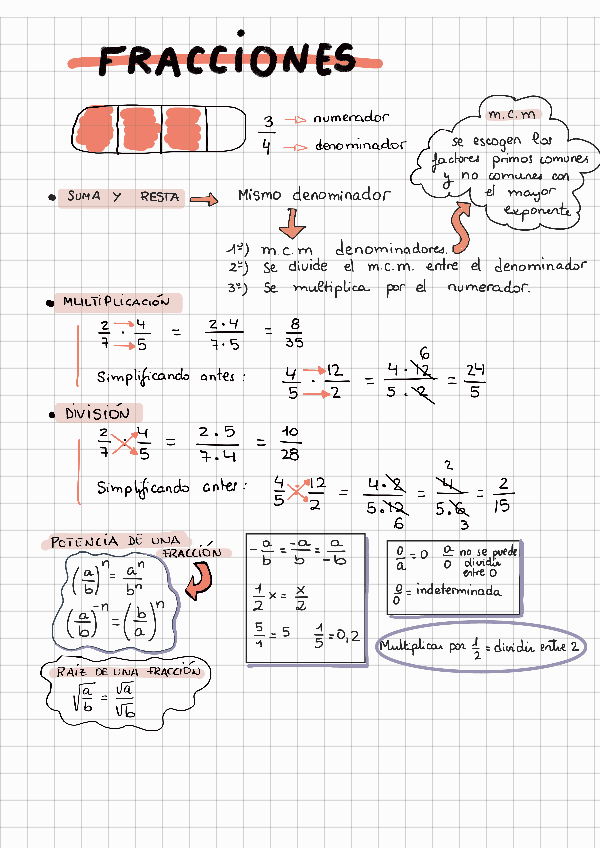 FRACCIONES
3/4 → numerador
→ denominador
m.c.m
se escogen los
factores primos comunes
y no comunes con
el mayor
exponente
• SUMA Y RESTA → Mismo denominador
1º) m.c.m denominadores.
2º) Se divide el m.c.m. entre el denominador
3º) Se multiplica por el numerador.
• MULTIPLICACIÓN
2/7 · 4/5 = 2·4/7·5 = 8/35
Simplificando antes: 4/5 · 12/2 = 4·12/5·2 = 24/5
6
• DIVISIÓN
2/7 : 4/5 = 2·5/7·4 = 10/28
Simplificando antes: 4/5 : 12/2 = 4·2/5·12 = 4/5·6 = 2/15
6 2 3
POTENCIA DE UNA
FRACCIÓN
(a/b)^n = a^n/b^n
(a/b)^-n = (b/a)^n
-a/b = -a/b = a/-b
1/2 x = x/2
5/1 = 5 1/5 = 0,2
0/a = 0 a/0 no se puede
dividir
entre 0
0/0 = indeterminada
Multiplicar por 1/2 = dividir entre 2
RAÍZ DE UNA FRACCIÓN
√a/b = √a/√b